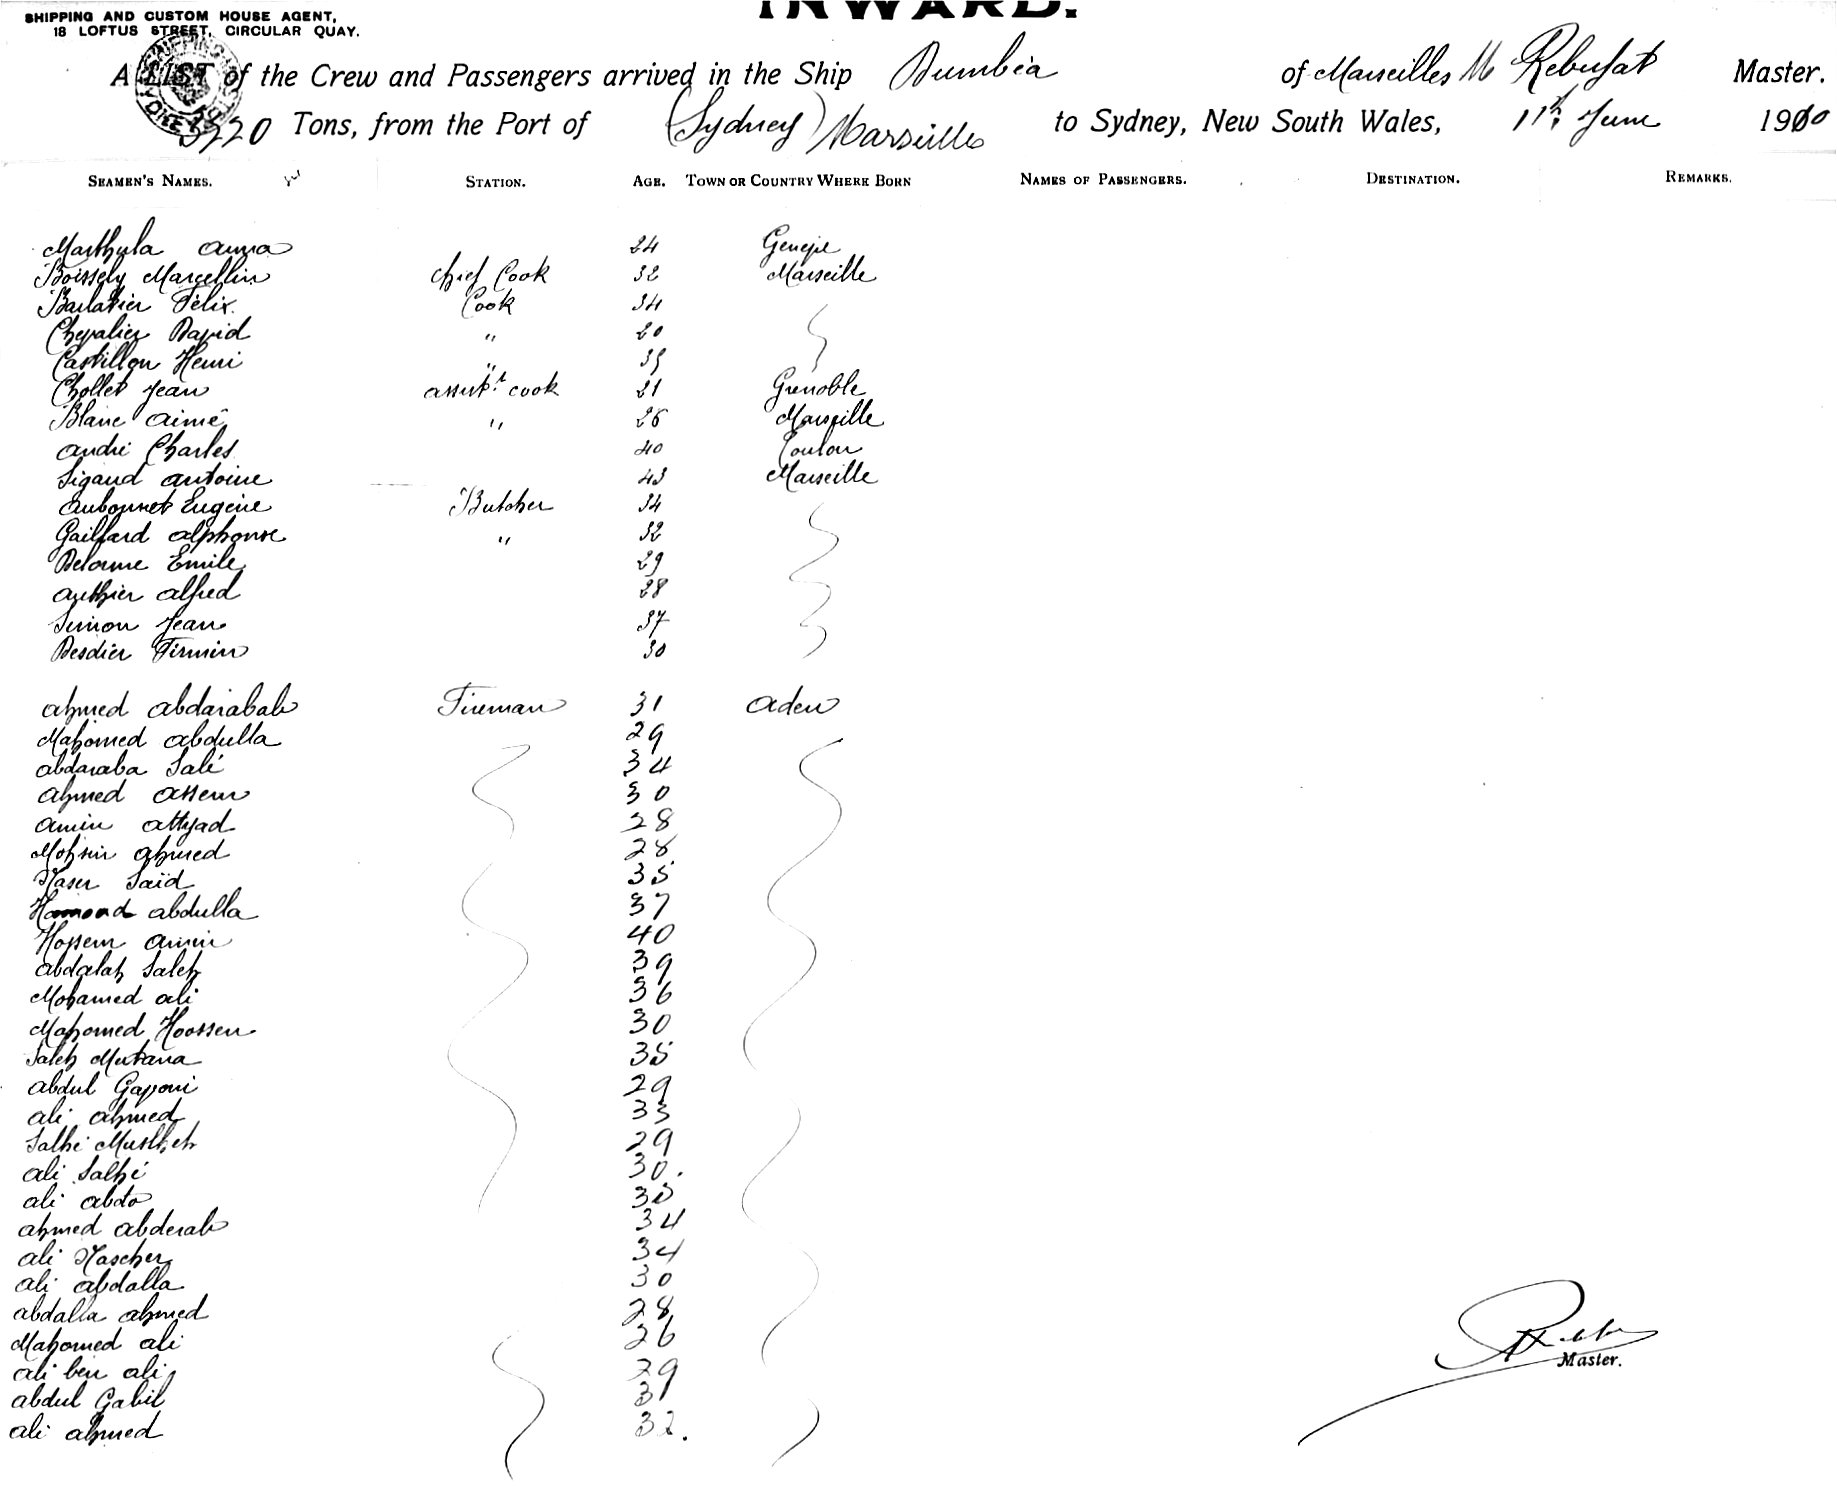 INWARD.
SHIPPING AND CUSTOM HOUSE AGENT,
18 LOFTUS STREET, CIRCULAR QUAY.
A LIST of the Crew and Passengers arrived in the Ship Dumbéa of Marseilles M Rebufat Master.
5220 Tons, from the Port of (Sydney) Marseilles to Sydney, New South Wales, 11th June 1910
SEAMEN'S NAMES. STATION. AGE. TOWN OR COUNTRY WHERE BORN NAMES OF PASSENGERS. DESTINATION. REMARKS.
Marthyla anna 24
Boissely Marcellin chief Cook 32 Marseille
Barlatier Félix. Cook 34
Chevalier David " 20
Castillon Henri " 39
Chollet Jean assist.t cook 21 Grenoble
Blanc aimé " 26 Marseille
andré Charles 40 Toulon
Sigaud antoine 43 Marseille
aubonnet Eugène Butcher 34
Gaillard alphonse " 32
Delorme Emile 29
authier alfred 28
Simon Jean 37
Desdier Firmin 30
ahmed abdarabab Fireman 31 aden
Mahomed abdulla 29
abdaraba Salé 34
ahmed assem 30
amin attyad 28
Mohsin ahmed 28
Naser Saïd 35
Hamond abdulla 37
Hossem amin 40
abdalah Saleh 39
Mohamed ali 36
Mahomed Hoossen 30
Saleh Mutana 35
abdul Gaponi 29
ali ahmed 33
Salhi 29
ali Salhé 30.
ali abdo 35
ahmed abderab 34
ali Nascher 34
ali abdalla 30
abdalla ahmed 28
Mahomed ali 26
ali ben ali 29
abdul Gabil 31
ali ahmed 32.
Master.